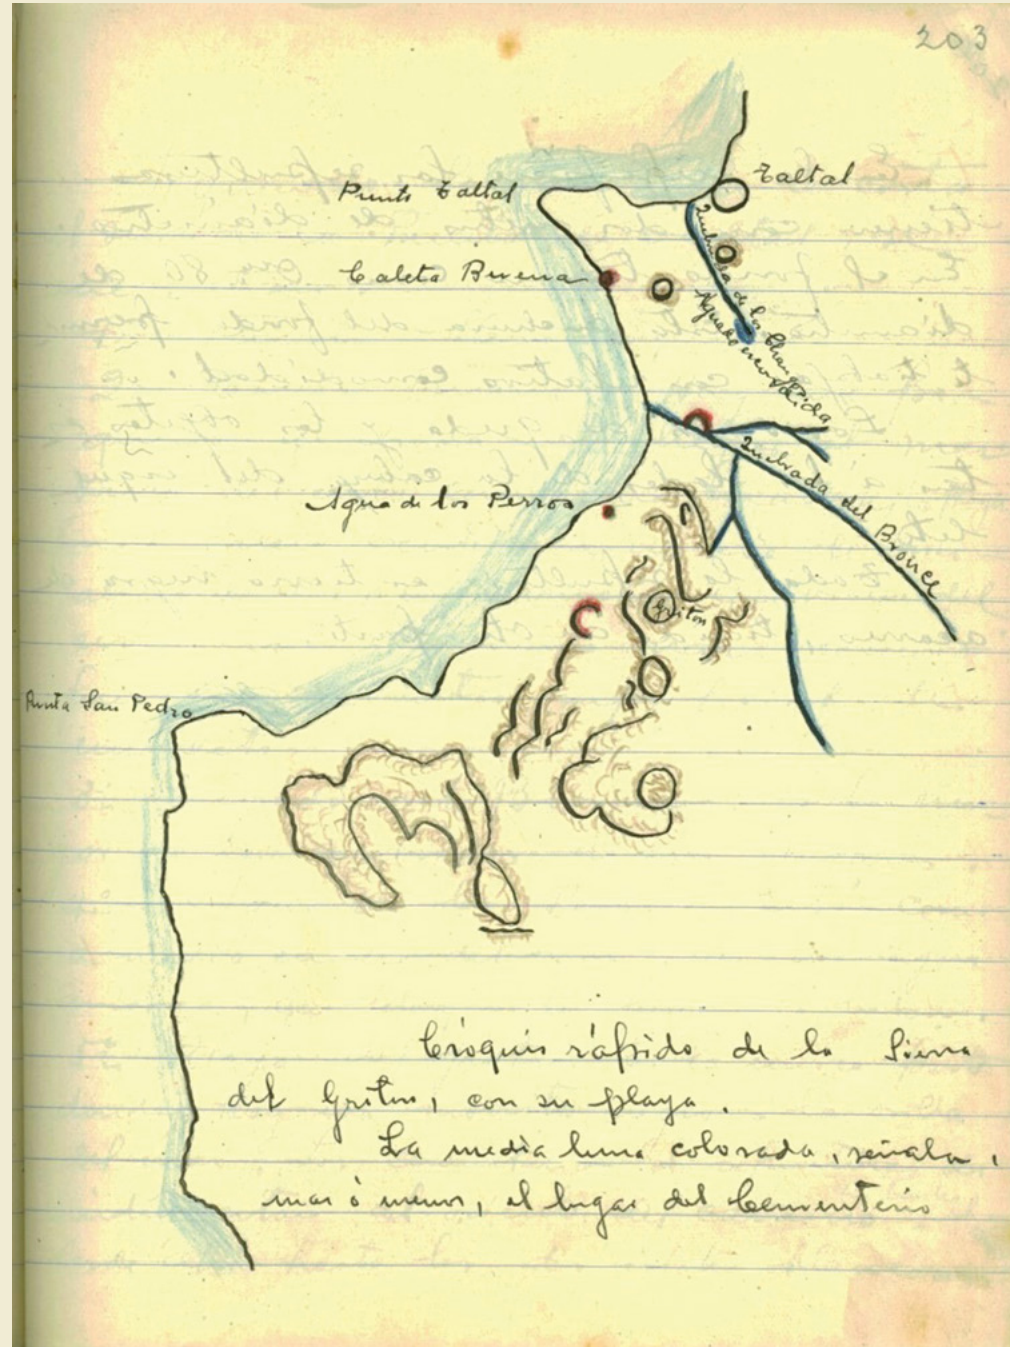 203
Taltal
Punta Taltal
Quebrada de los Changos
Caleta Buena
Aguada escondida
Quebrada del Bronce
Agua de los Perros
Griton
Punta San Pedro
Cróquis rápido de la Sierra
del Gritón, con su playa.
La media luna colorada, señala,
mas ó menos, el lugar del Cementerio